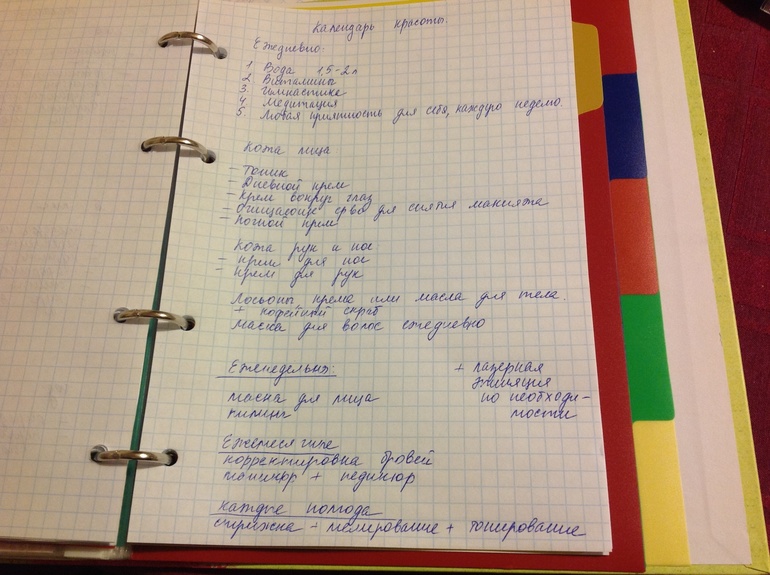 Календарь красоты.
Ежедневно:
1 Вода 1,5-2л
2 Витамины
3 Гимнастика
4 Медитация
5 Любая приятность для себя, каждую неделю.
Кожа лица
- Тоник
- Дневной крем
- Крем вокруг глаз
- Очищающие ср-во для снятия макияжа
- Ночной крем
Кожа рук и ног:
- крем для ног
- крем для рук
Лосьоны крема или масла для тела.
+ кофейный скраб
Маска для волос ежедневно
Еженедельно:
маска для лица
пилинг
+ лазерная
эпиляция
по необходи-
мости
Ежемесячно
корректировка бровей
маникюр + педикюр
Каждые полгода
стрижка - мелирование + тонирование